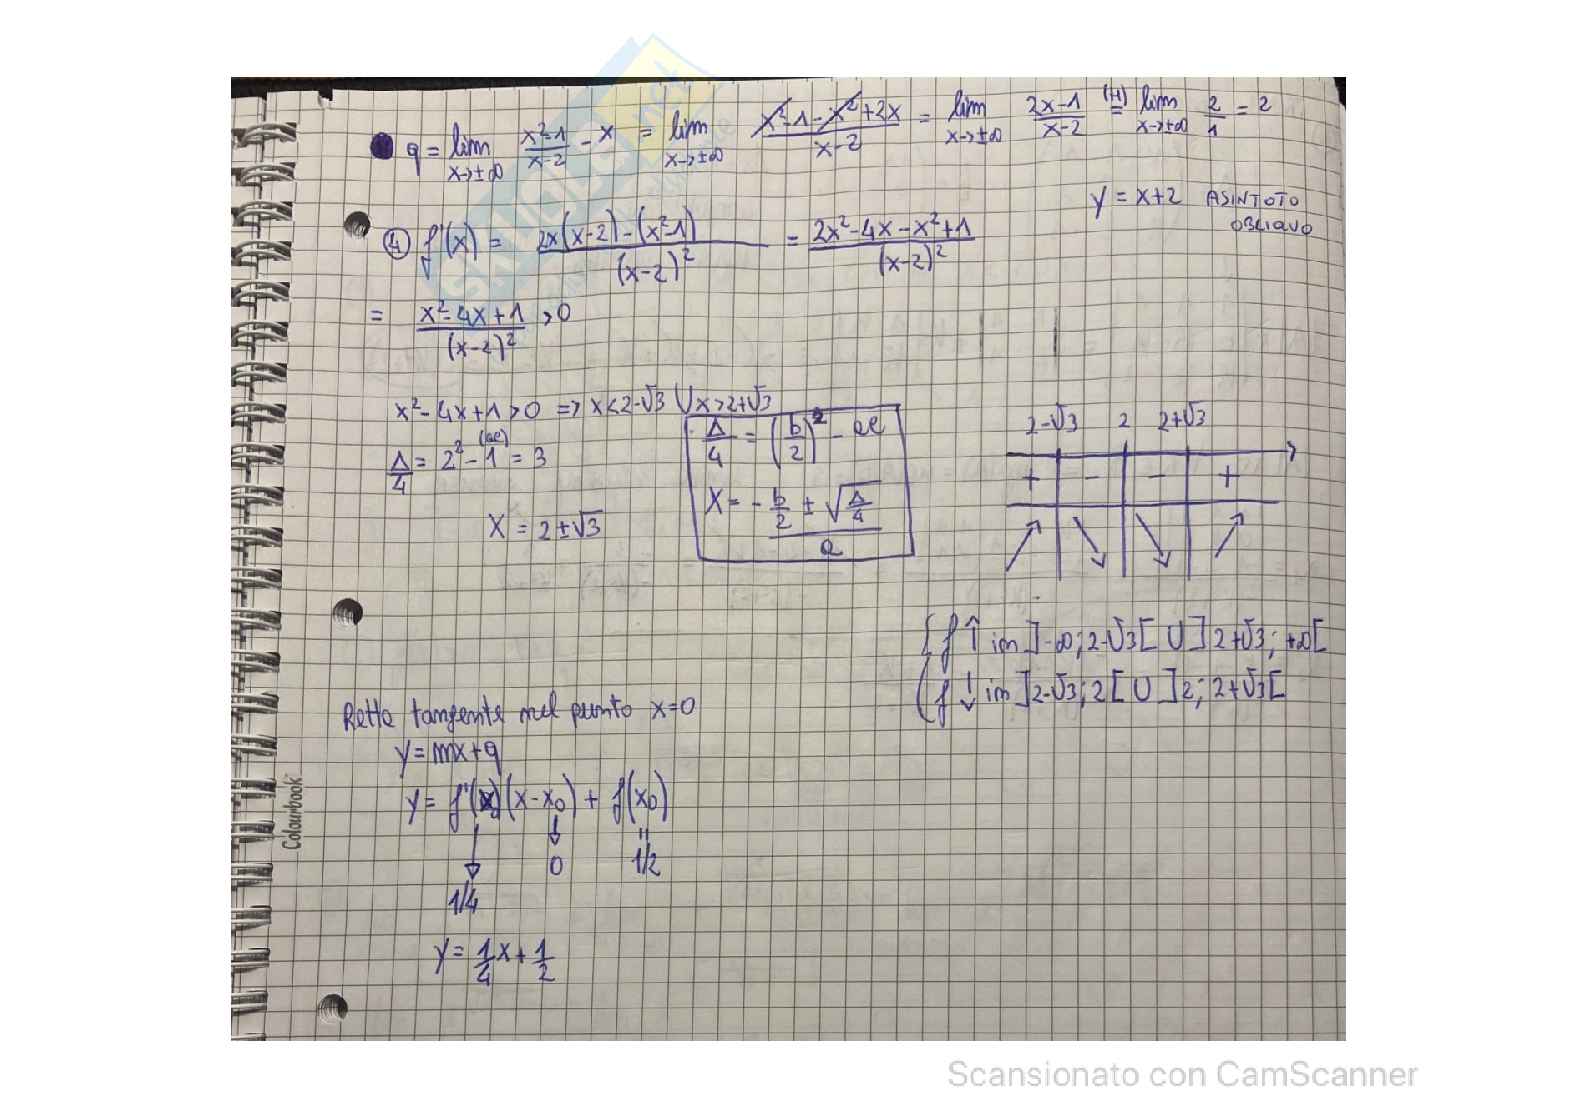 q = lim x→±∞ (x²-1)/(x-2) - x = lim x→±∞ (x²-1-x²+2x)/(x-2) = lim x→±∞ (2x-1)/(x-2) (H)= lim x→±∞ 2/1 = 2
y = x+2 ASINTOTO OBLIQUO
④ f'(x) = (2x(x-2)-(x²-1))/(x-2)² = (2x²-4x-x²+1)/(x-2)²
= (x²-4x+1)/(x-2)² >0
x²-4x+1>0 => x<2-√3 ∪ x>2+√3
Δ/4 = 2²-1 (ac) = 3
x = 2±√3
Δ/4 = (b/2)² - ac
x = (-b/2 ± √(Δ/4))/a
2-√3 2 2+√3
+ - - +
f↑ in ]-∞;2-√3[ ∪ ]2+√3;+∞[
f↓ in ]2-√3;2[ ∪ ]2;2+√3[
Retta tangente nel punto x=0
y=mx+q
y= f'(x₀)(x-x₀)+ f(x₀)
0 1/2
1/4
y= 1/4 x+ 1/2
Colourbook
Scansionato con CamScanner